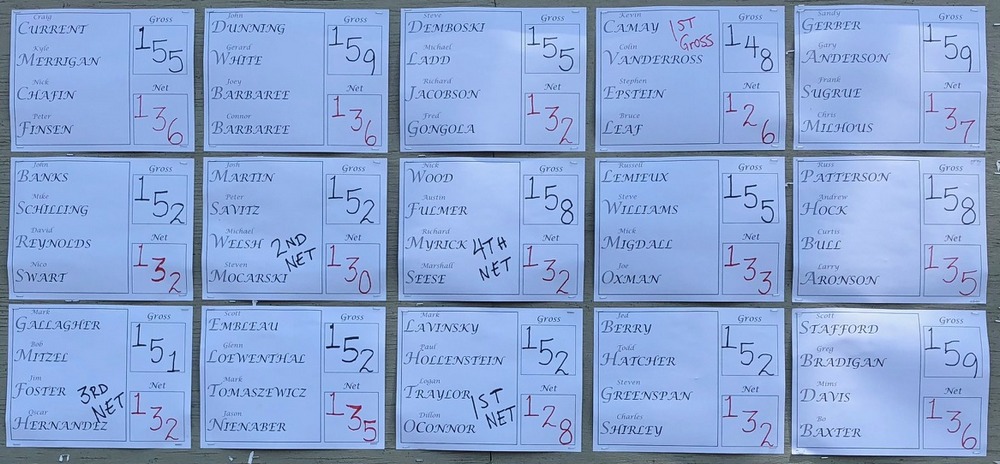 Craig
CURRENT
Kyle
MERRIGAN
Nick
CHAFIN
Peter
FINSEN
Gross
155
Net
136
John
DUNNING
Gerard
WHITE
Joey
BARBAREE
Connor
BARBAREE
Gross
159
Net
136
Steve
DEMBOSKI
Michael
LADD
Richard
JACOBSON
Fred
GONGOLA
Gross
155
Net
132
Kevin
CAMAY
Colin
VANDERROSS
Stephen
EPSTEIN
Bruce
LEAF
1ST
GROSS
Gross
148
Net
126
Sandy
GERBER
Gary
ANDERSON
Frank
SUGRUE
Chris
MILHOUS
Gross
159
Net
137
John
BANKS
Mike
SCHILLING
David
REYNOLDS
Nico
SWART
Gross
152
Net
132
Josh
MARTIN
Peter
SAVITZ
Michael
WELSH
Steven
MOCARSKI
2ND
NET
Gross
152
Net
130
Nick
WOOD
Austin
FULMER
Richard
MYRICK
Marshall
SEESE
4TH
NET
Gross
158
Net
132
Russell
LEMIEUX
Steve
WILLIAMS
Mick
MIGDALL
Joe
OXMAN
Gross
155
Net
133
Russ
PATTERSON
Andrew
HOCK
Curtis
BULL
Larry
ARONSON
Gross
158
Net
135
Mark
GALLAGHER
Bob
MITZEL
Jim
FOSTER
Oscar
HERNANDEZ
3RD
NET
Gross
151
Net
132
Scott
EMBLEAU
Glenn
LOEWENTHAL
Mark
TOMASZEWICZ
Jason
NIENABER
Gross
152
Net
135
Mark
LAVINSKY
Paul
HOLLENSTEIN
Logan
TRAYLOR
Dillon
OCONNOR
1ST
NET
Gross
152
Net
128
Jed
BERRY
Todd
HATCHER
Steven
GREENSPAN
Charles
SHIRLEY
Gross
152
Net
132
Scott
STAFFORD
Greg
BRADIGAN
Mims
DAVIS
Bo
BAXTER
Gross
159
Net
136